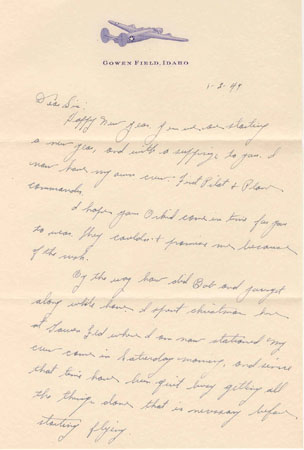 GOWEN FIELD, IDAHO
1-3-44
Dear Sis:
Happy New year, you are starting
a new year, and with a surprise to you. I
now have my own crew: First Pilot & Plane
commander.
I hope your Orchid came in time for you
to wear. They couldn't promise me because
of the rush.
By the way how did Bob and get
along while home. I spent christmas here
at Gowen Field where I am now stationed. My
crew came in Saturday morning, and since
that time have been quit busy getting all
the things done that is necessary before
starting flying.